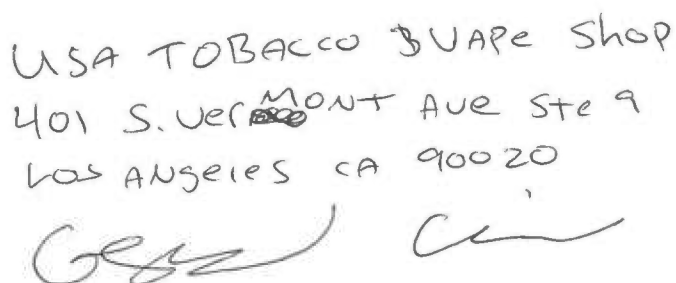 USA TOBACCO & VAPe Shop
401 S. VerMONT AVe Ste 9
LOS ANgeles CA 90020